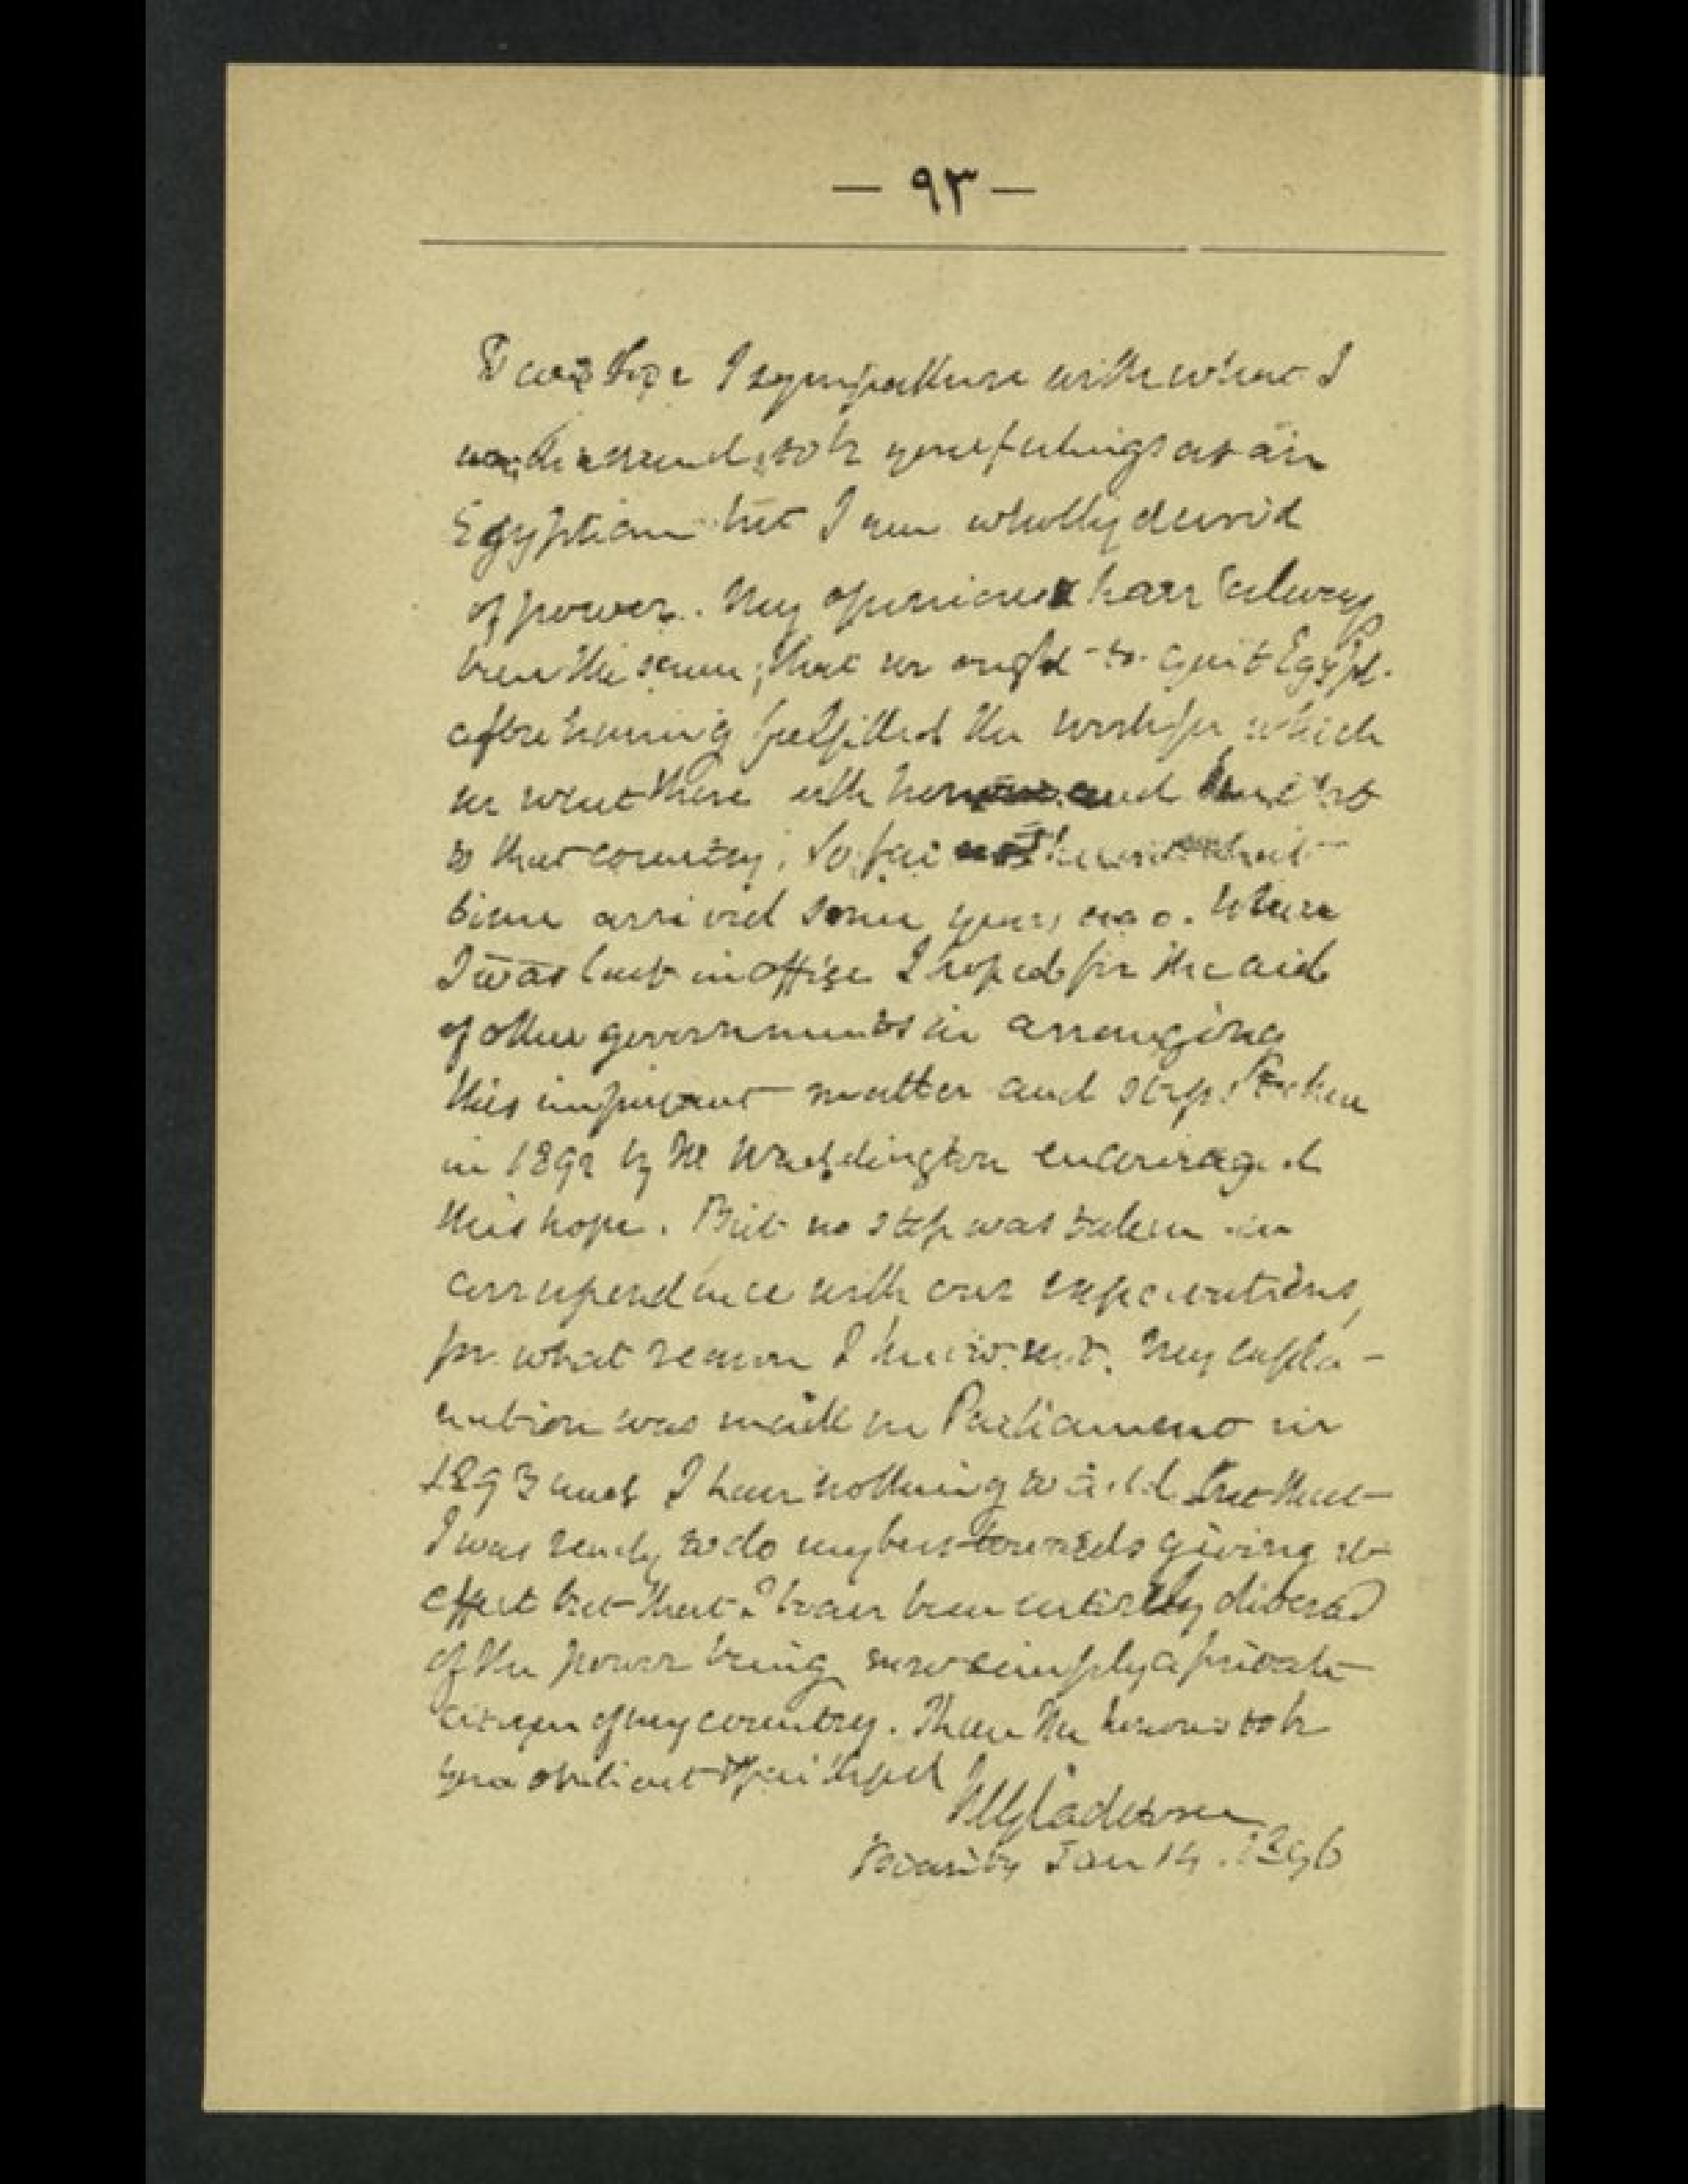 — ٩٣ —
I sympathise with what I
understand to be your feelings as an
Egyptian but I am wholly devoid
of power. My opinions have always
been the same; that we ought to quit Egypt
after having fulfilled the work for which
we went there with honour and
to that country. So far
time arrived some years ago. When
I was last in office I hoped for the aid
of other governments in arranging
this important matter and steps taken
in 1892 by M Waddington encouraged
this hope. But no step was taken in
correspondence with our expectations,
for what reason I know not. My expla-
nation was made in Parliament in
1893 and I have nothing to add but that
I was ready to do my best towards giving it
effect but that I have been entirely
of the power being now simply a private
citizen of my country. I have the honour to be
your obedient
WGladstone
Biarritz Jan 14. 1896